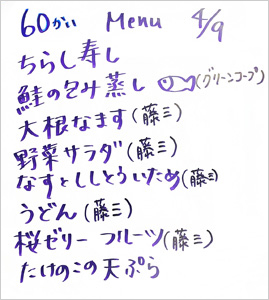 60かい Menu 4/9
ちらし寿し
鮭の包み蒸し (グリーンコープ)
大根なます(藤三)
野菜サラダ(藤三)
なすとししとういため(藤三)
うどん(藤三)
桜ゼリー フルーツ(藤三)
たけのこの天ぷら